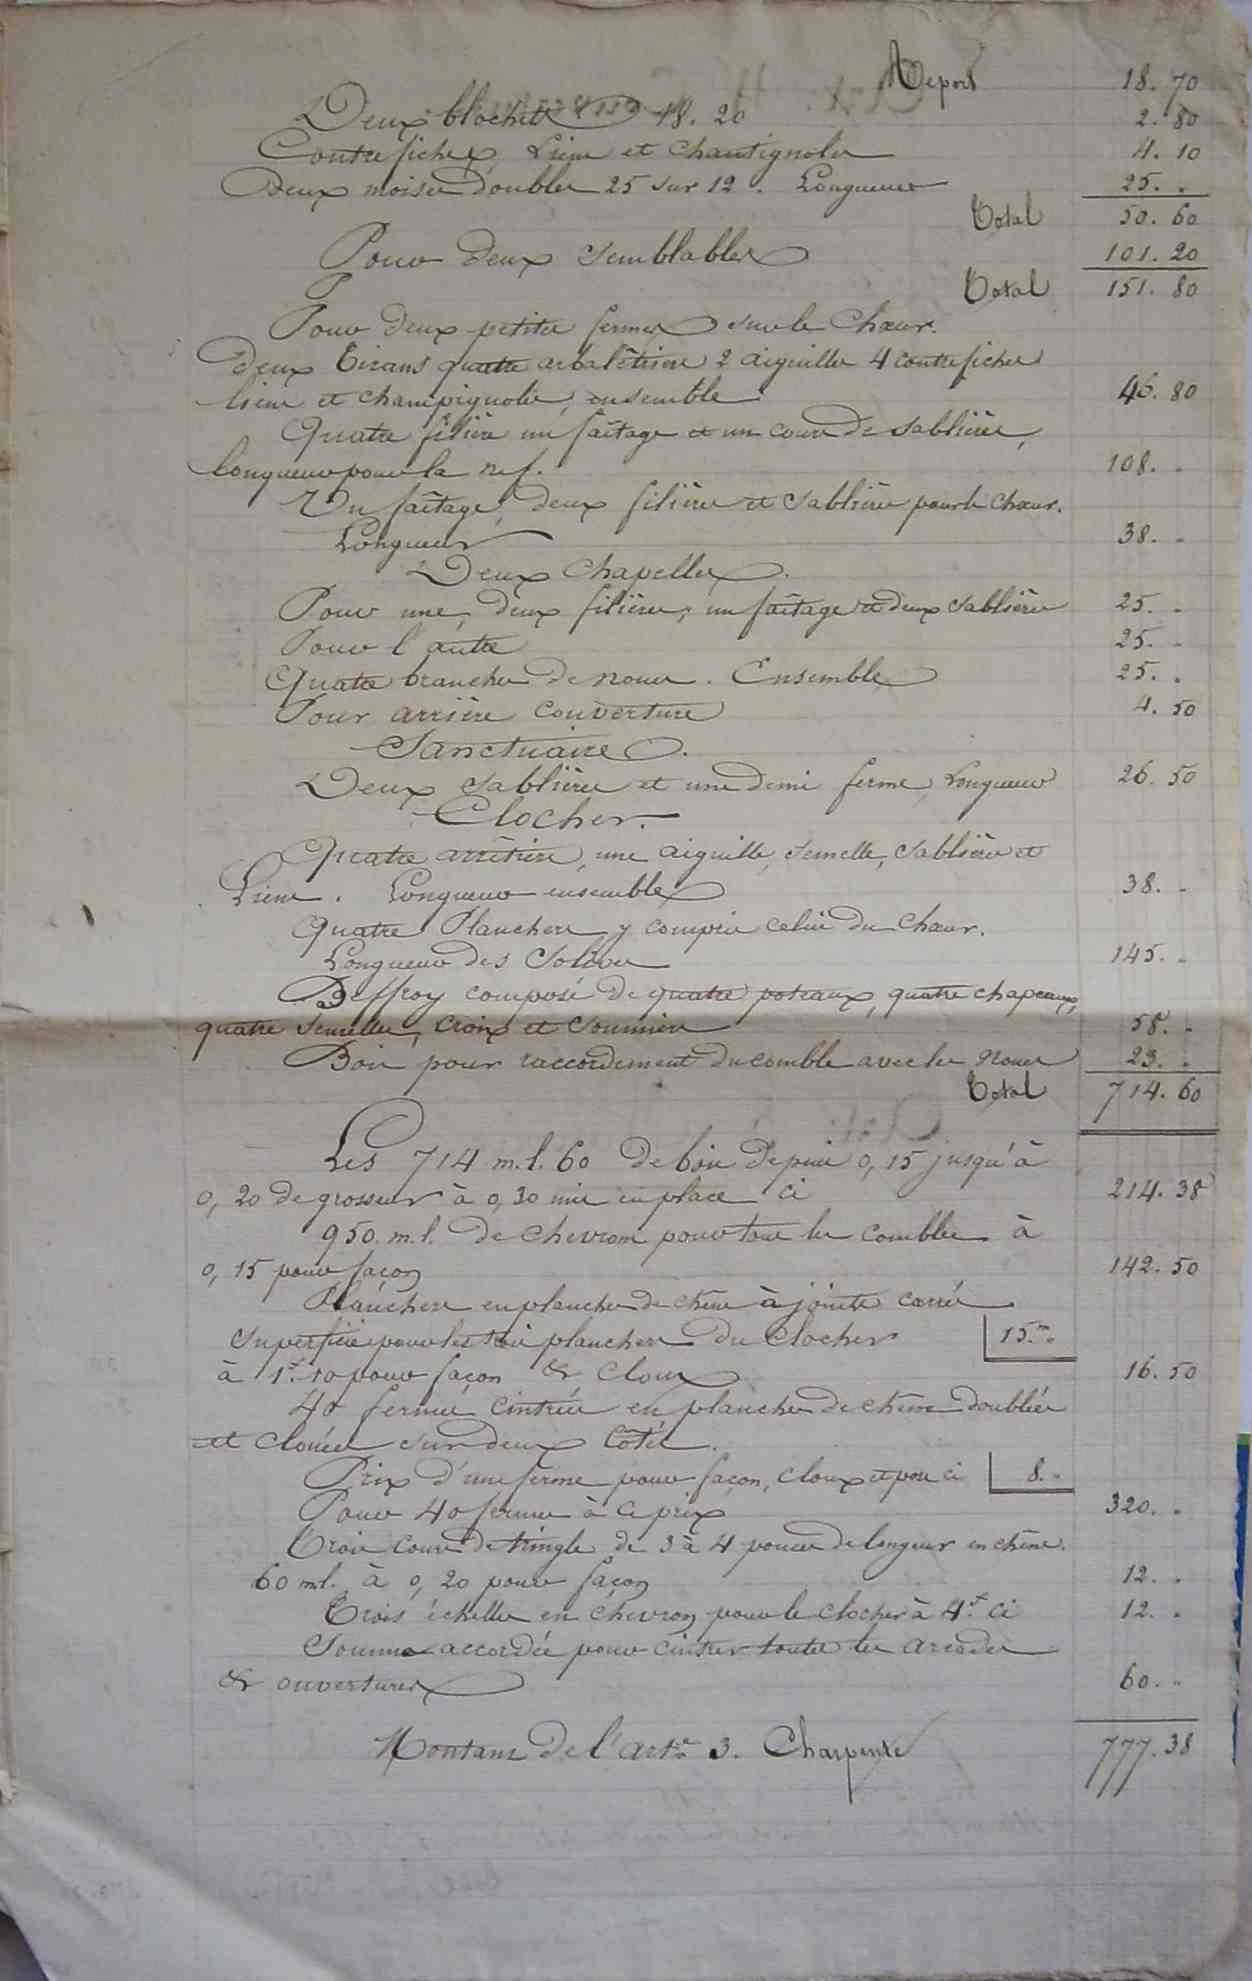 Report 18. 70
Deux blochets 18. 20 2. 80
Contrefiches, Liens et chantignoles 4. 10
Deux moises doubles 25 sur 12. Longueur 25. "
Total 50. 60
Pour deux semblables 101. 20
Total 151. 80
Pour deux petites fermes sur le Chœur.
Deux Tirans quatre arbalêtriers 2 aiguilles 4 contrefiches
liens et champignoles, ensemble 46. 80
Quatre filière un faîtage et un cours de sablières,
longueur pour la nef. 108. "
Un faîtage, deux filières et sablières pour le Chœur.
Longueur 38. "
Deux Chapelles.
Pour une, deux filières, un faîtage et deux sablières 25. "
Pour l'autre 25. "
Quatre branches de noues. Ensemble 25. "
Pour arrière couverture 4. 50
Sanctuaire.
Deux sablières et une demi ferme, Longueur 26. 50
Clocher.
Quatre arrêtiers, une aiguille, semelle, sablières et
Liens. Longueur ensemble 38. "
Quatre Planchers y compris celui du Chœur.
Longueur des Solives 145. "
Beffroy composé de quatre poteaux, quatre chapeaux,
quatre semelles, croix et sommiers 58. "
Bois pour raccordement du comble avec les noues 23. "
Total 714. 60
Les 714 m. l. 60 de bois depuis 0, 15 jusqu'à
0, 20 de grosseur à 0, 30 mis en place ci 214. 38
950. m. l. de chevrons pour tous les combles à
0, 15 pour façon 142. 50
Planchers en planches de chêne à joints carrés
superficie pour les trois planchers du Clocher 15.m "
à 1.f 10 pour façon & Cloux 16. 50
40 fermes cintrées en planches de chêne doublées
et clouées sur deux côtés.
Prix d'une ferme pour façon, cloux et pose ci 8. "
Pour 40 fermes à ce prix 320. "
Trois cours de tringle de 3 à 4 pouces de longeur en chêne.
60 ml. à 0, 20 pour façon 12. "
Trois échelles en chevron pour le clocher à 4.f ci 12. "
Somme accordée pour cintrer toutes les arcades
& ouvertures 60. "
Montant de l'art.e 3. Charpente 777. 38